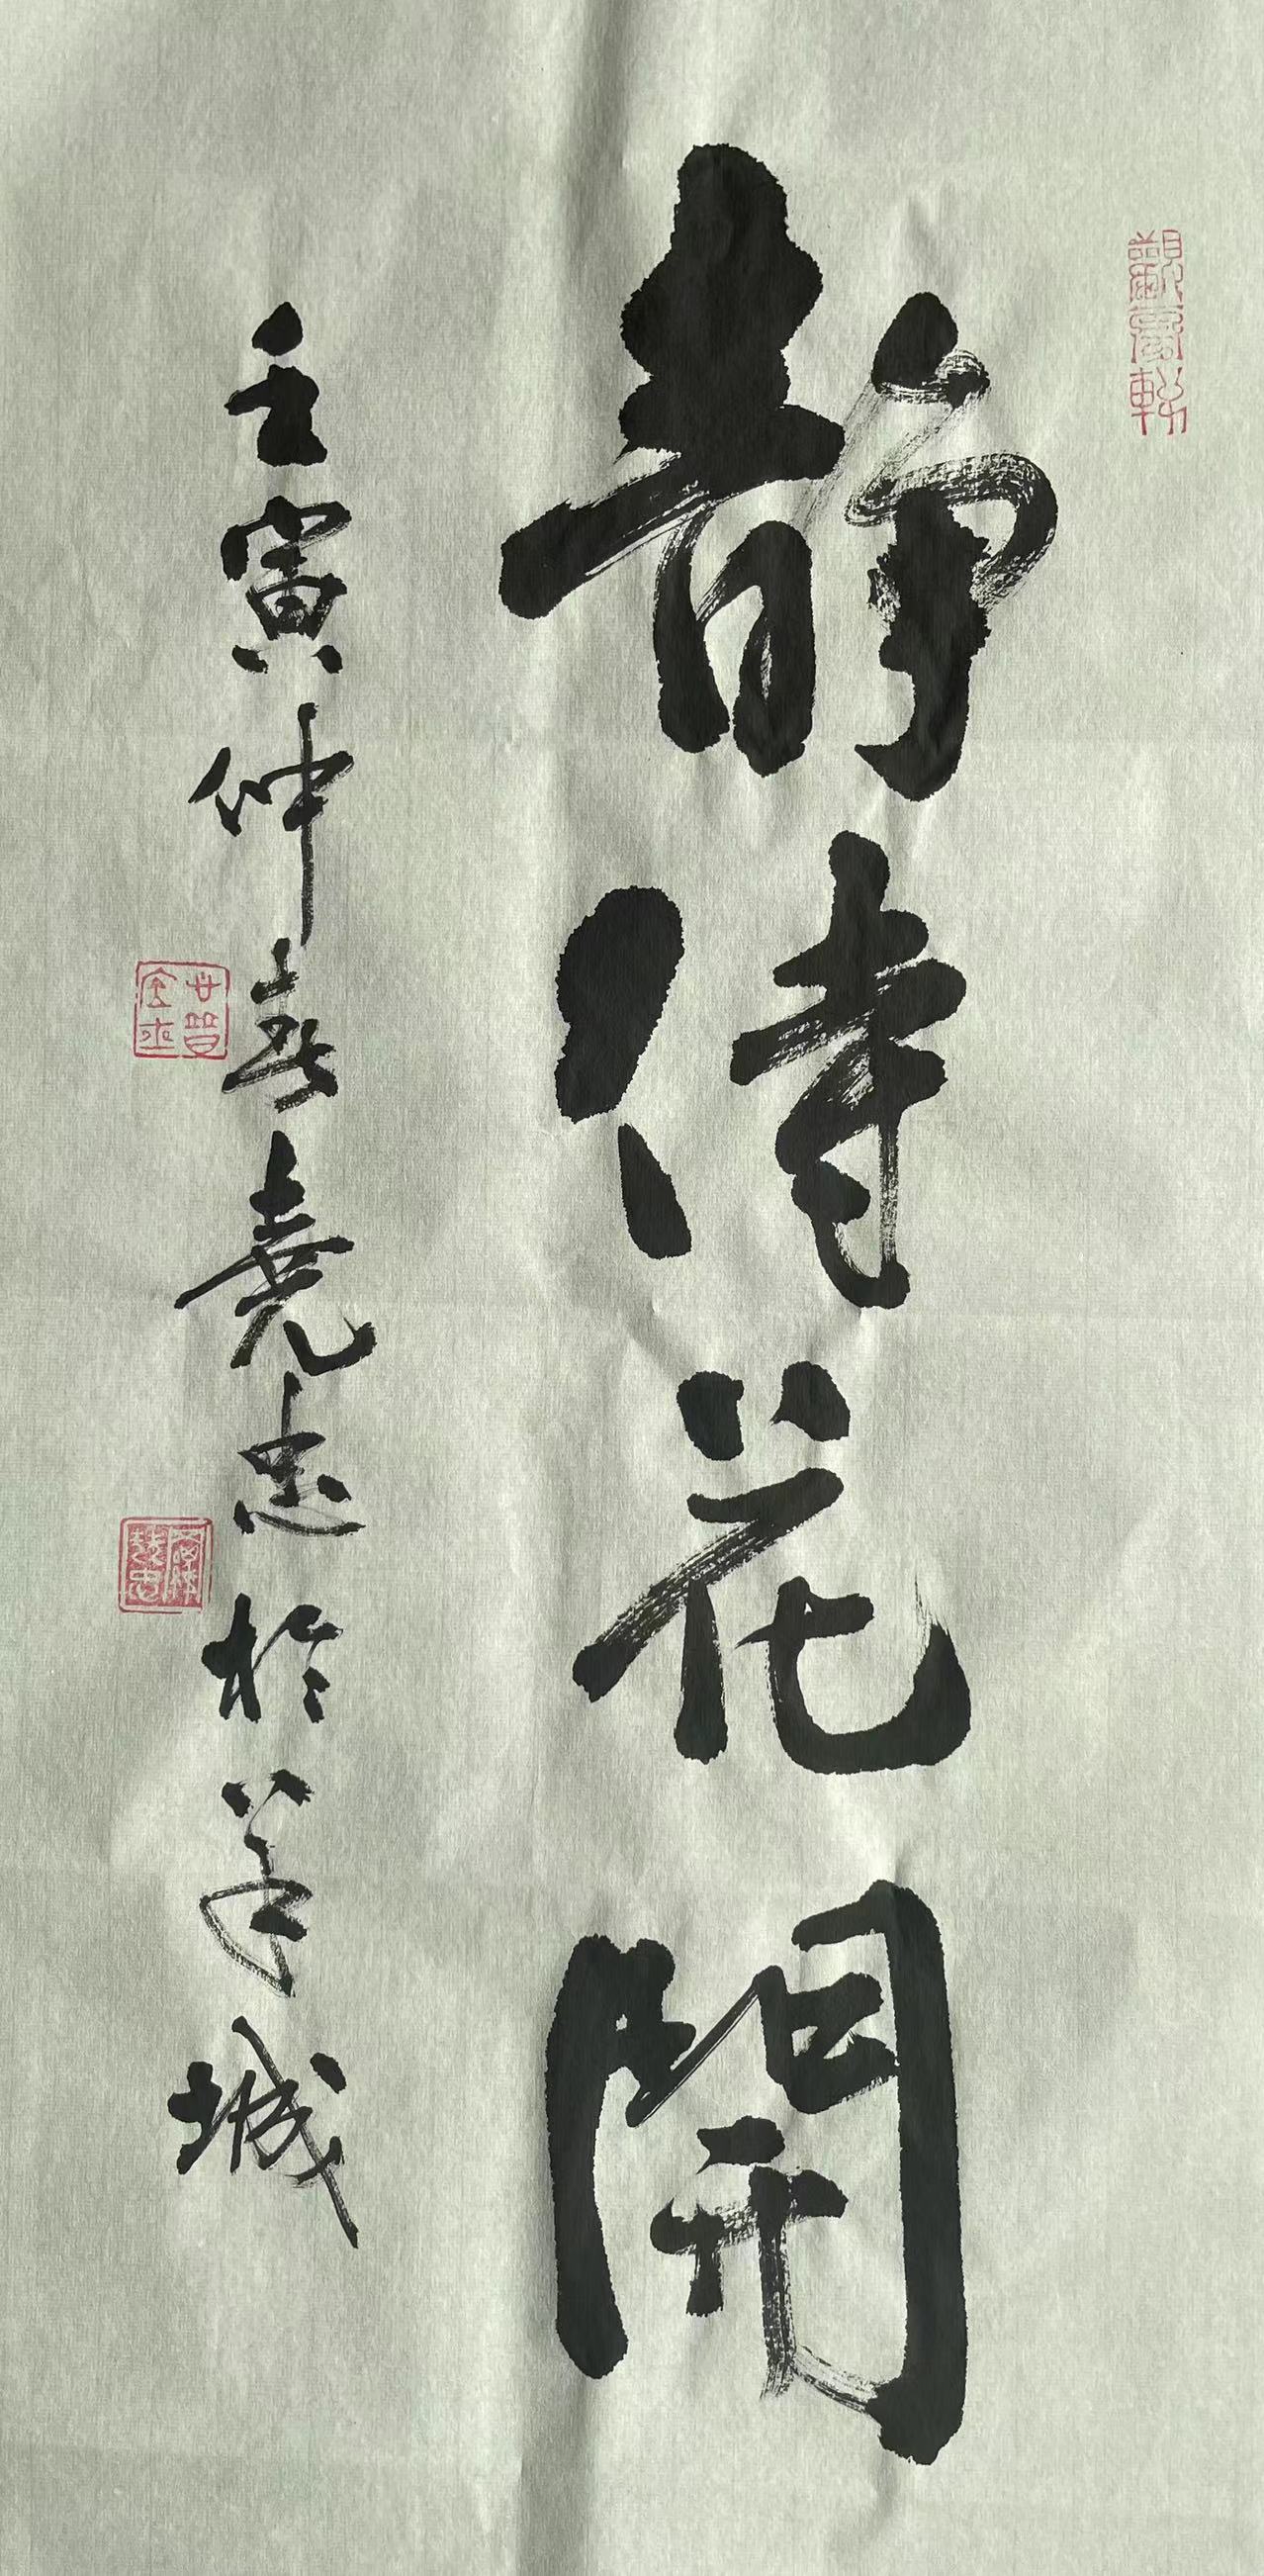 靜待花開
壬寅仲春堯忠於羊城